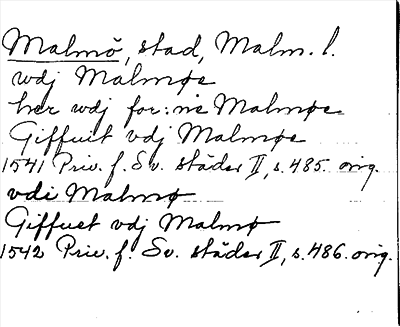 Malmö, stad, Malm. l.
wdj Malmøe
her wdj for: ne Malmøe
Giffuit vdj Malmøe
1541 Priv. f. Sv. städer II, s. 485. orig.
vdi Malmø
Giffuet vdj Malmø
1542 Priv. f. Sv. städer II, s. 486. orig.